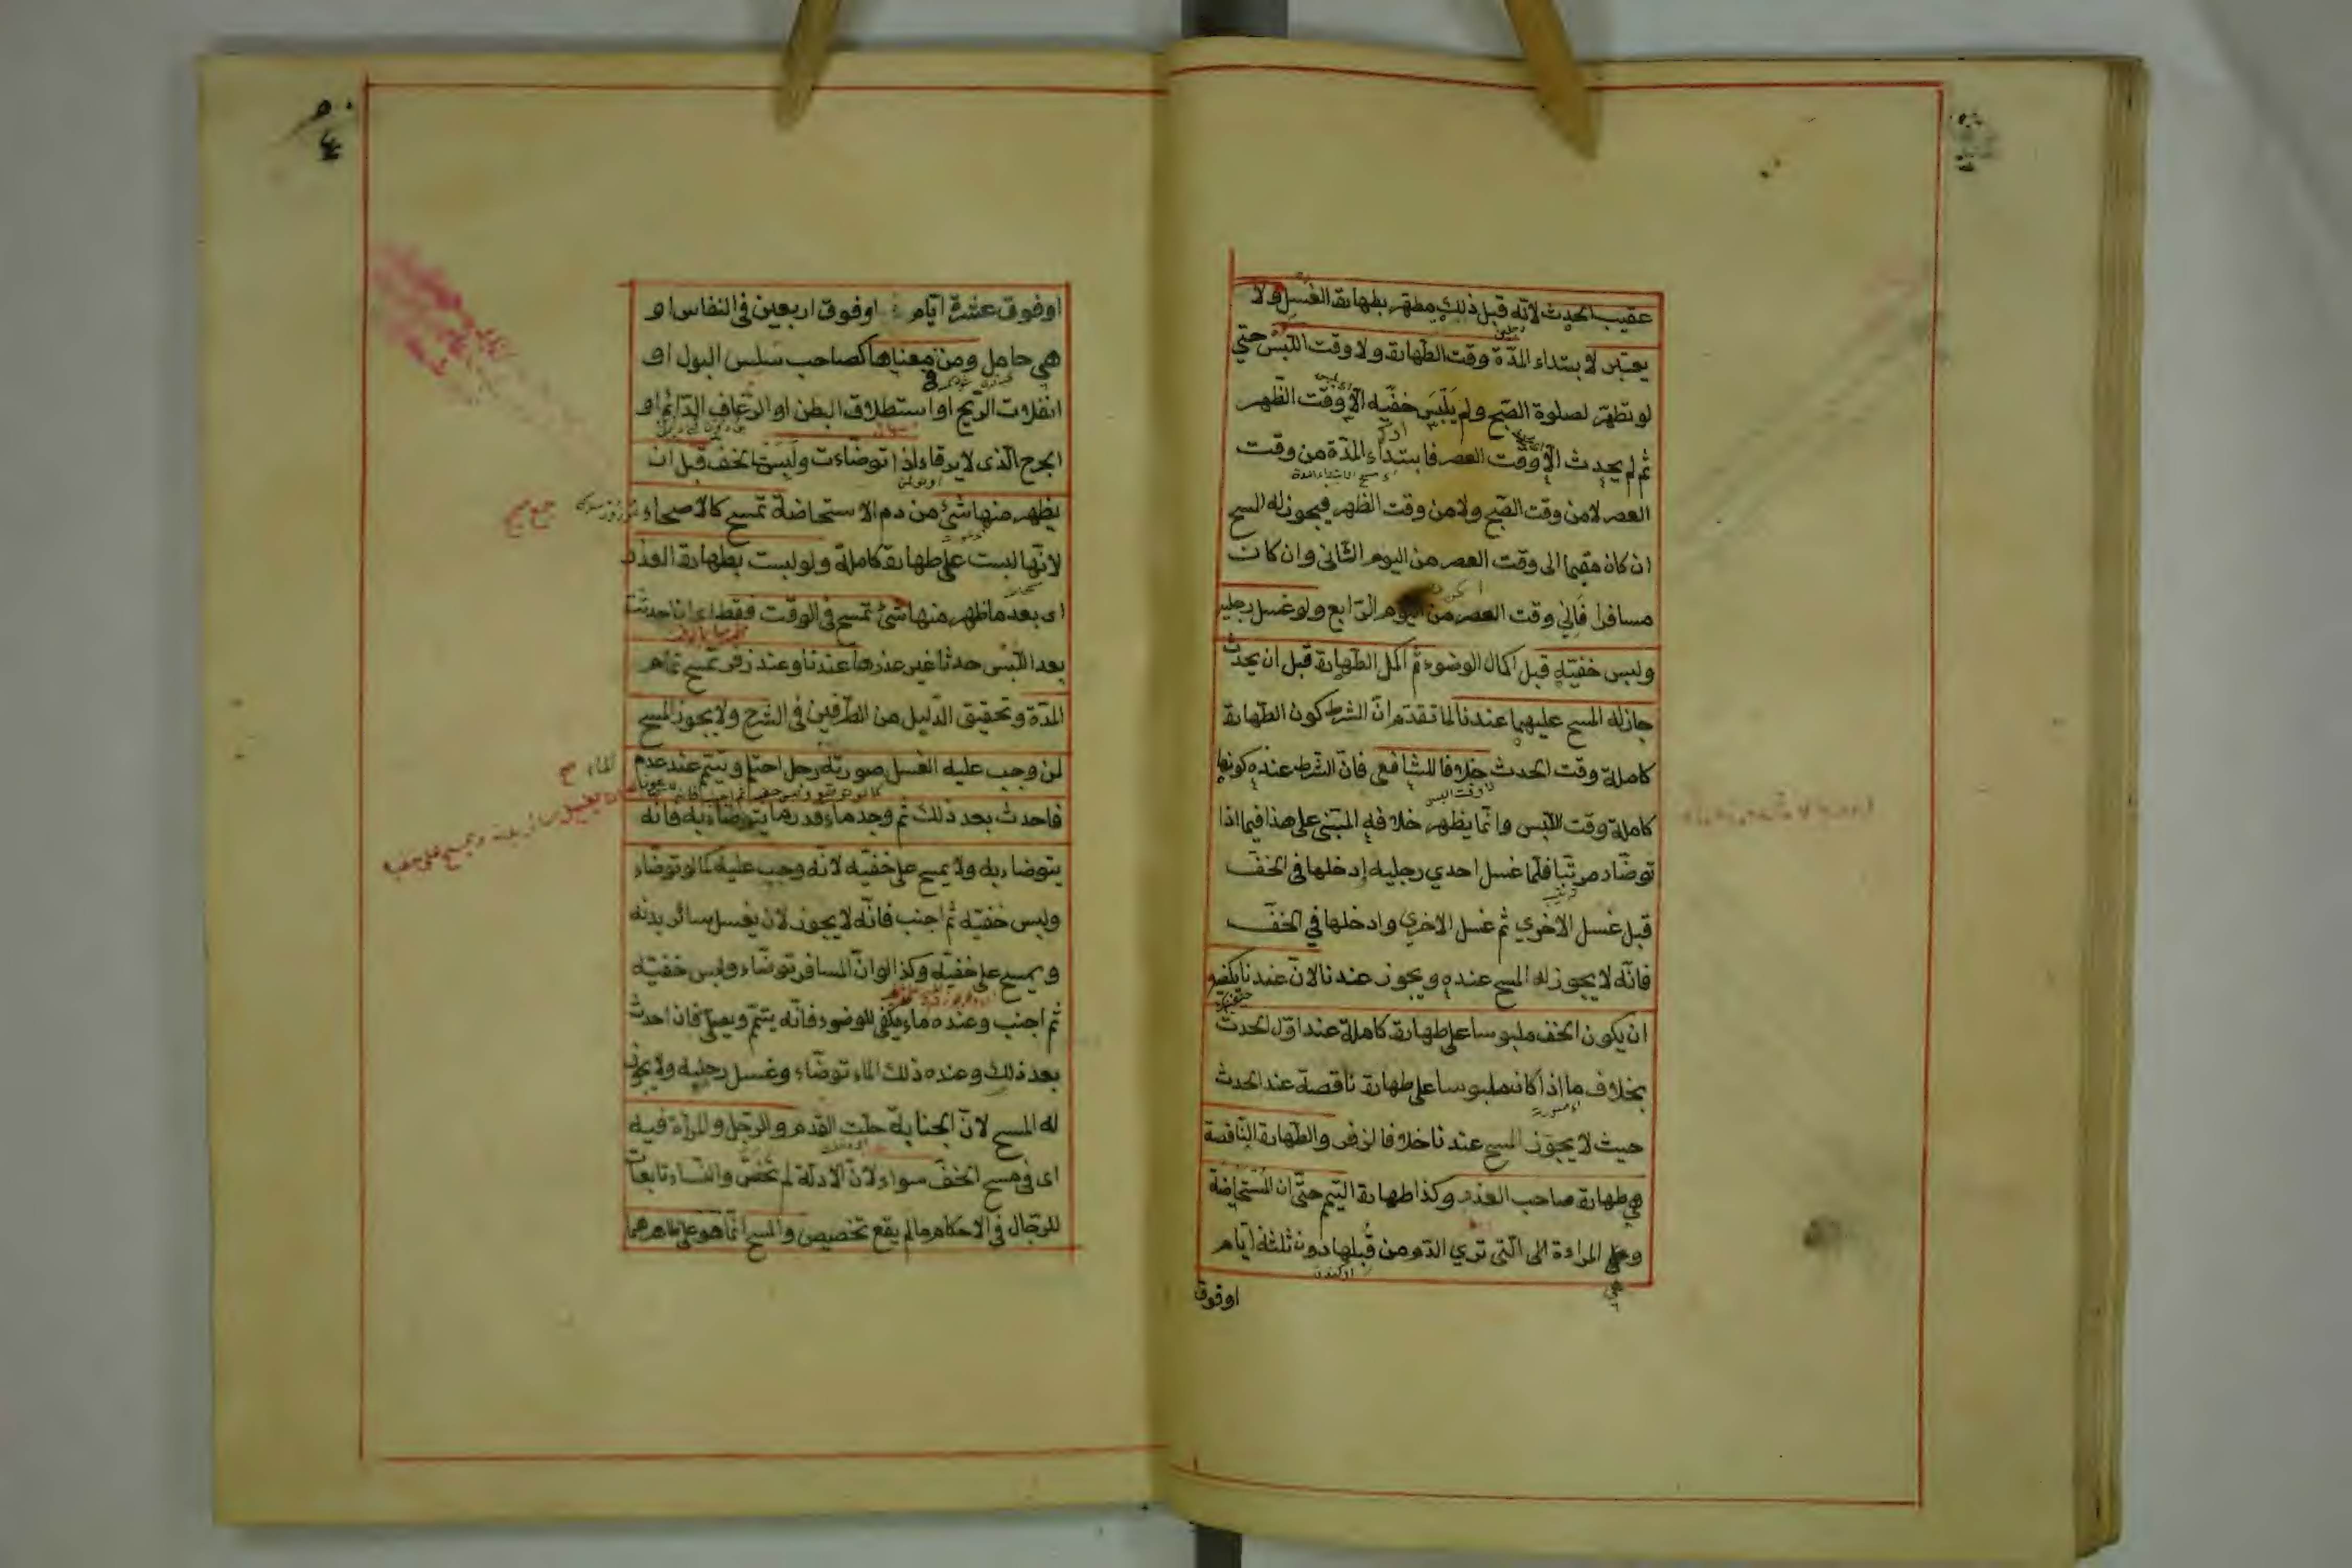 عقيب الحدث لانّه قبل ذلك مطهّر بطهارة الغسل ولا
يعتبر لابتداء المدّة وقت الطّهارة ولا وقت اللّبس حتي
لو تطهّر لصلوة الصّبح ولم يَلْبَسَ خفّيه الاّ وقت الظّهر
ثم لم يحدث الاّ وقت العصر فابتداء المدّة من وقت
العصر لا من وقت الصّبح ولا من وقت الظهر فيجوز له المسح
ان كان مقيما الى وقت العصر من اليوم الثّانى وان كان
مسافرا فَاِلي وقت العصر من اليوم الرّابع ولو غسل رجليه
ولبس خفيّه قبل اكمال الوضوء ثم اكمل الطهارة قبل ان يحدث
جاز له المسح عليهما عندنا لما تقدّم انّ الشرط كون الطهارة
كاملة وقت الحدث خلافا للشافعى فانّ الشرط عنده كونها
كاملة وقت اللّبس وانّما يظهر خلافه المبتنى على هذا فيما اذا
توضّاء مرتّبا فلمّا غسل احدي رجليه ادخلها فى الخفّ
قبل غسل الاخري ثم غسل الاخري وادخلها في الخفّ
فانّه لا يجوز له المسح عنده ويجوز عندنا لانّ عندنا يكفي
ان يكون الخف ملبوسا على طهارة كاملة عند اوّل الحدث
بخلاف ما اذا كان ملبوسا على طهارة ناقصة عند الحدث
حيث لا يجوز المسح عندنا خلافا لزفر والطهارة النّاقصة
هى طهارة صاحب العذر وكذا طهارة التيمم حتّى ان المُسْتَحَاضَة
وهى المراءة الى الّتى تري الدّم من قُبلها دون ثلثة ايّام
اوفوق
اوفوق عشرة ايّام اوفوق اربعين فى النفاس او
هى حامل ومن بمعناها كصاحب سلس البول او
انفلات الرّيح او استطلاق البطن او الرّعاف الدّائم او
الجرح الّذى لا يرقاء اذا توضّاءت ولبست الخف قبل ان
يظهر منها شئ من دم الاستحاضة تمسح كالاصحاء
لانّها لبست على طهارة كاملة ولو لبست بطهارة العذر
اى بعد ما ظهر منها شئ تمسح فى الوقت فقط اى ان احدثت
بعد اللّبس حدثا غير عذرها عندنا وعند زفر تمسح تمام
المدّة وتحقيق الدّليل من الطّرفين فى الشّرح ولا يجوز المسح
لمن وجب عليه الغسل صورته رجل احتلم وتيمّم عند عدم
الماء صح
فاحدث بعد ذلك ثم وجد ماء قدر ما يتوضّاء به فانّه
يتوضاء به ولا يمسح على خفيّه لانّه وجب عليه كما لو توضّاء
ولبس خفيّه ثم اجنب فانّه لا يجوز لان يغسل سائر بدنه
ويمسح على خفيّه وكذا لو انّ المسافر توضّاء ولبس خفيّه
ثم اجنب وعنده ماء يكفى للوضوء فانّه يتيمّم ويصلّى فان احدث
بعد ذلك وعنده ذلك الماء توضّاء وغسل رجليه ولا يجوز
له المسح لانّ الجنابة حلّت القدم والرّجل والمراءة فيه
اى فى مسح الخفّ سواء لانّ الادلّة لم تخصّ والنّساء تابعات
للرّجال فى الاحكام ما لم يقع تخصيص والمسح انّما هو على ظاهرهما